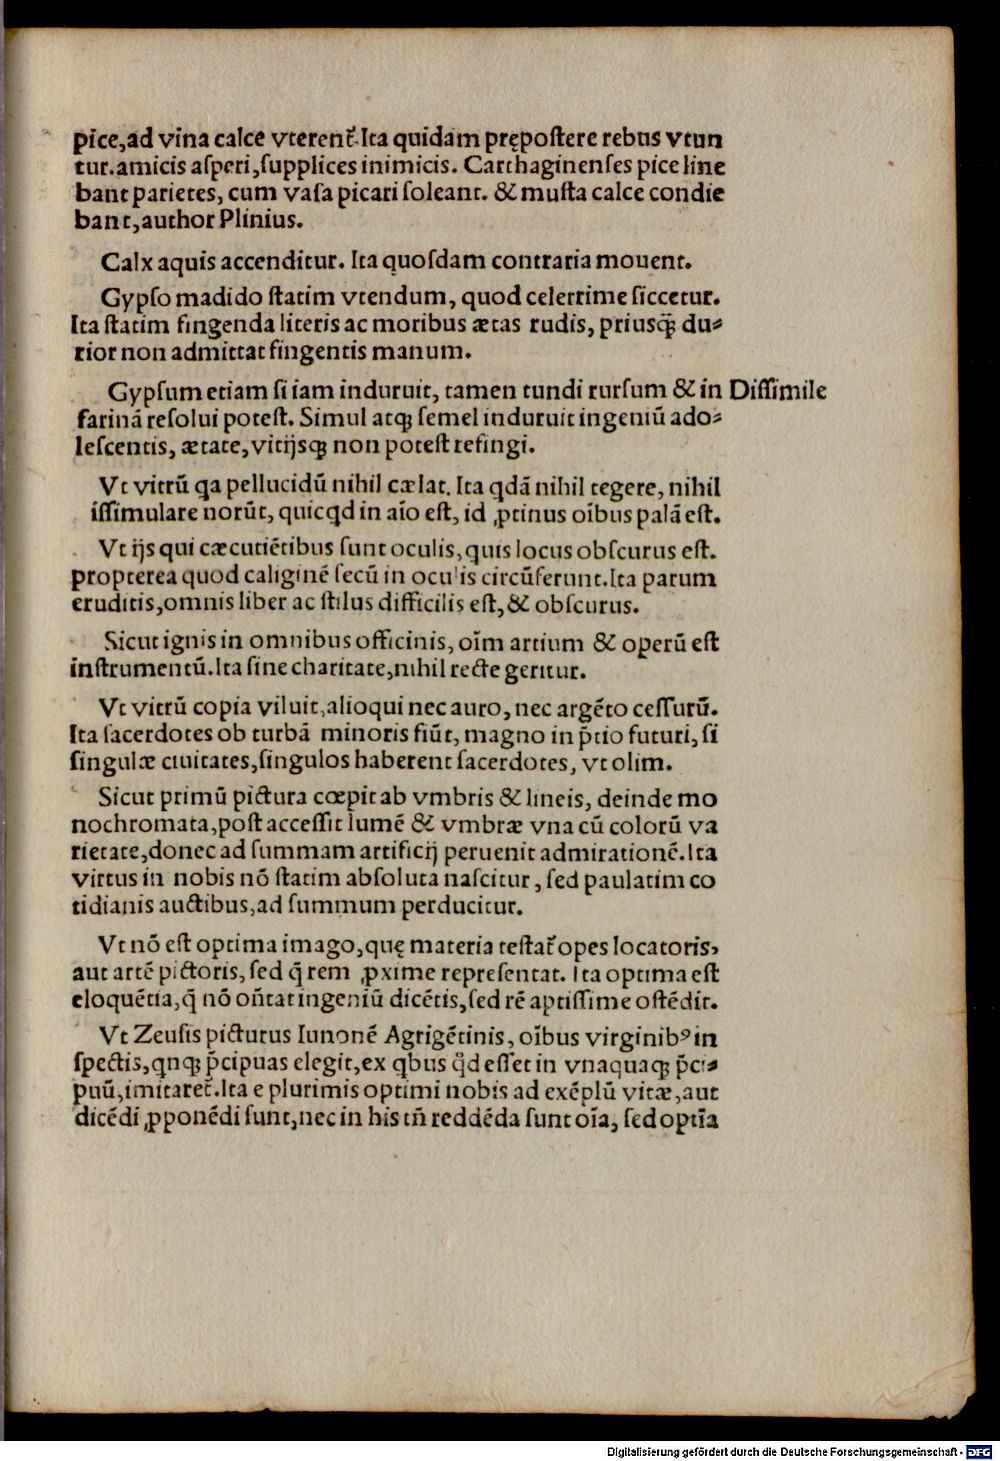 pice,ad vina calce vterent᷑.Ita quidam prępoſtere rebus vtun
tur.amicis aſperi,ſupplices inimicis. Carthaginenſes pice line
bant parietes, cum vaſa picari ſoleant. & muſta calce condie
bant,author Plinius.
Calx aquis accenditur. Ita quoſdam contraria mouent.
Gypſo madido ſtatim vtendum, quod celerrime ſiccetur.
Ita ſtatim fingenda literis ac moribus ætas rudis, priusq̃ du⸗
rior non admittat fingentis manum.
Gypſum etiam ſi iam induruit, tamen tundi rurſum & in Diſſimile
farinā reſolui poteſt. Simul atqꝫ ſemel induruit ingeniū ado⸗
leſcentis, ætate, vitijsqꝫ non poteſt refingi.
Vt vitrū qa pellucidū nihil cælat. Ita qdā nihil tegere, nihil
iſſimulare norūt, quicqd in aīo eſt, id ꝓtinus oībus palā eſt.
Vt ijs qui cæcutiētibus ſunt oculis, quis locus obſcurus eſt.
propterea quod caliginē ſecū in oculis circūferunt.Ita parum
eruditis,omnis liber ac ſtilus difficilis eſt,& obſcurus.
Sicut ignis in omnibus officinis, oīm artium & operū eſt
inſtrumentū.Ita ſine charitate,nihil recte geritur.
Vt vitrū copia viluit,alioqui nec auro, nec argēto ceſſurū.
Ita ſacerdotes ob turbā minoris fiūt, magno in p̄tio futuri, ſi
ſingulæ ciuitates,ſingulos haberent ſacerdotes, vt olim.
Sicut primū pictura cœpit ab vmbris & lineis, deinde mo
nochromata,poſt acceſſit lumē & vmbræ vna cū colorū va
rietate,donec ad ſummam artificij peruenit admirationē.Ita
virtus in nobis nō ſtatim abſoluta naſcitur, ſed paulatim co
tidianis auctibus,ad ſummum perducitur.
Vt nō eſt optima imago,quę materia teſtat᷑ opes locatoris,
aut artē pictoris, ſed q̄ rem ꝓxime repreſentat. Ita optima eſt
eloquētia,q̄ nō oñtat ingeniū dicētis,ſed rē aptiſſime oſtēdit.
Vt Zeuſis picturus Iunonē Agrigētinis, oībus virginibꝰ in
ſpectis,qnqꝫ p̄cipuas elegit,ex qbus q̄d eſſet in vnaquaqꝫ p̄ci⸗
puū,imitaret᷑.Ita e plurimis optimi nobis ad exēplū vitæ,aut
dicēdi ꝓponēdi ſunt,nec in his tñ reddēda ſunt oīa, ſed optīa
Digitalisierung gefördert durch die Deutsche Forschungsgemeinschaft - DFG